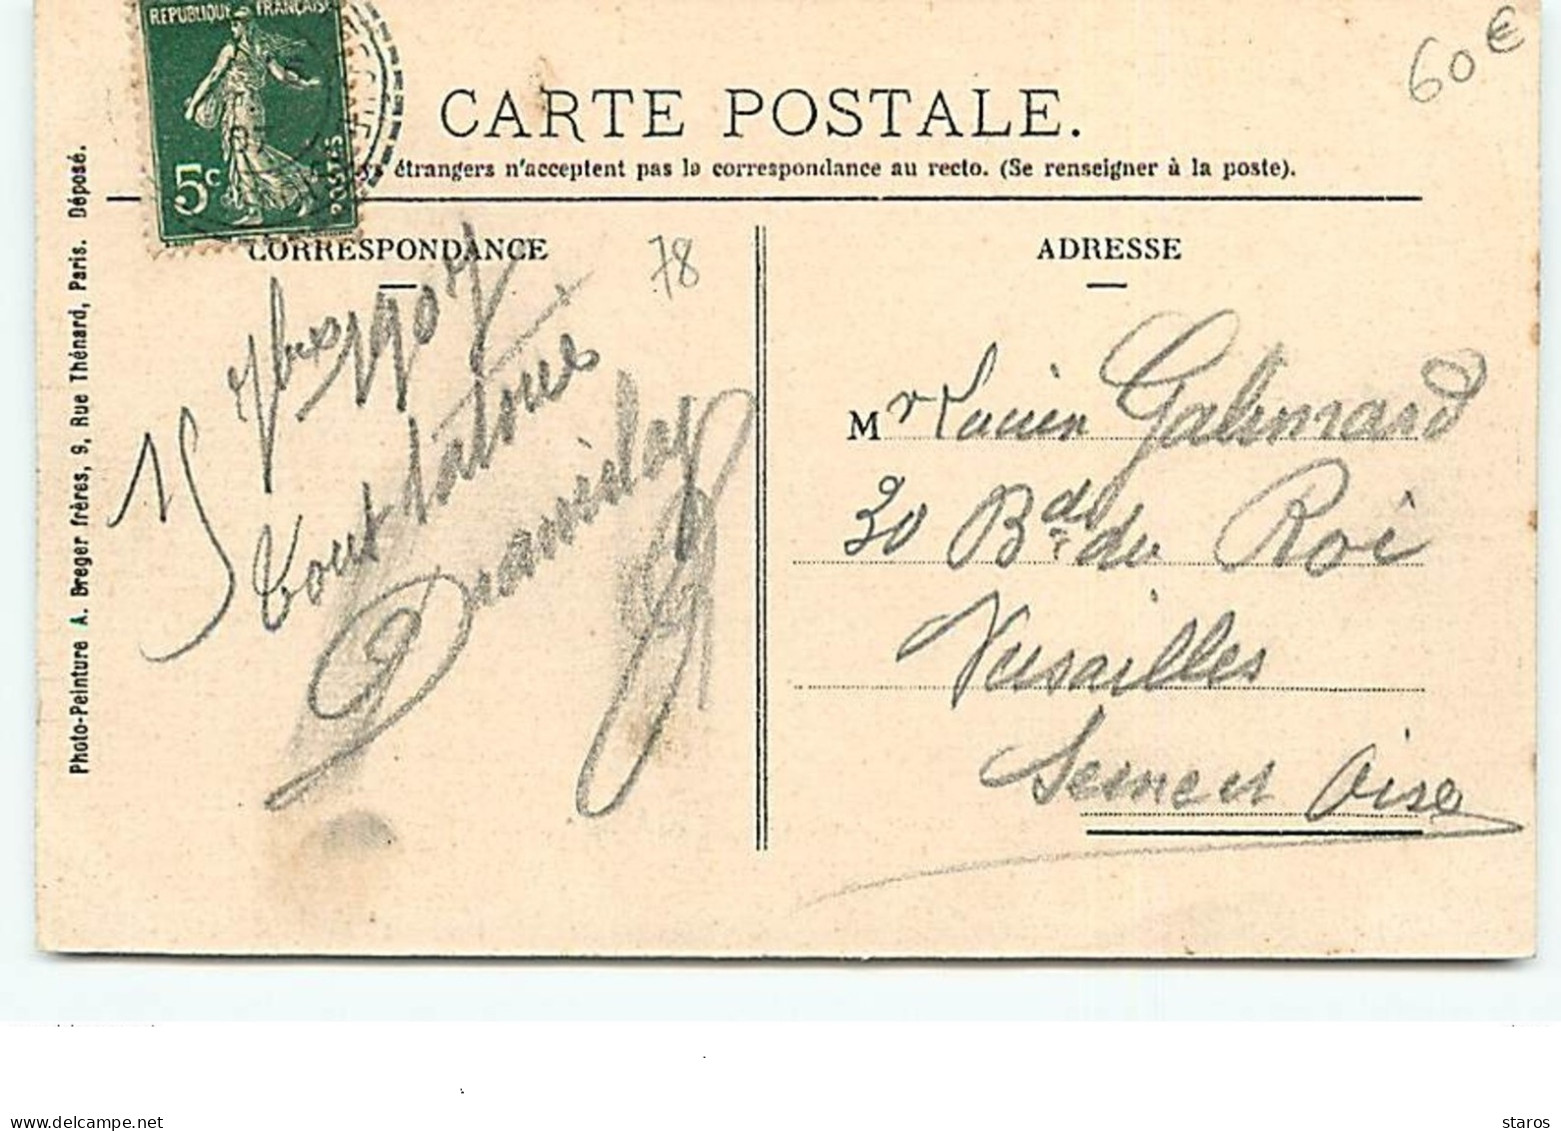 REPUBLIQUE FRANÇAISE
5c
POSTES
07
60€
CARTE POSTALE.
étrangers n'acceptent pas la correspondance au recto. (Se renseigner à la poste).
CORRESPONDANCE
78
15 7bre 1907
Tout à vous
ADRESSE
Mr Lucien Galimard
30 Bd du Roi
Versailles
Seine et Oise
Photo-Peinture A. Breger frères, 9, Rue Thénard, Paris. Déposé.
www.delcampe.net
staros